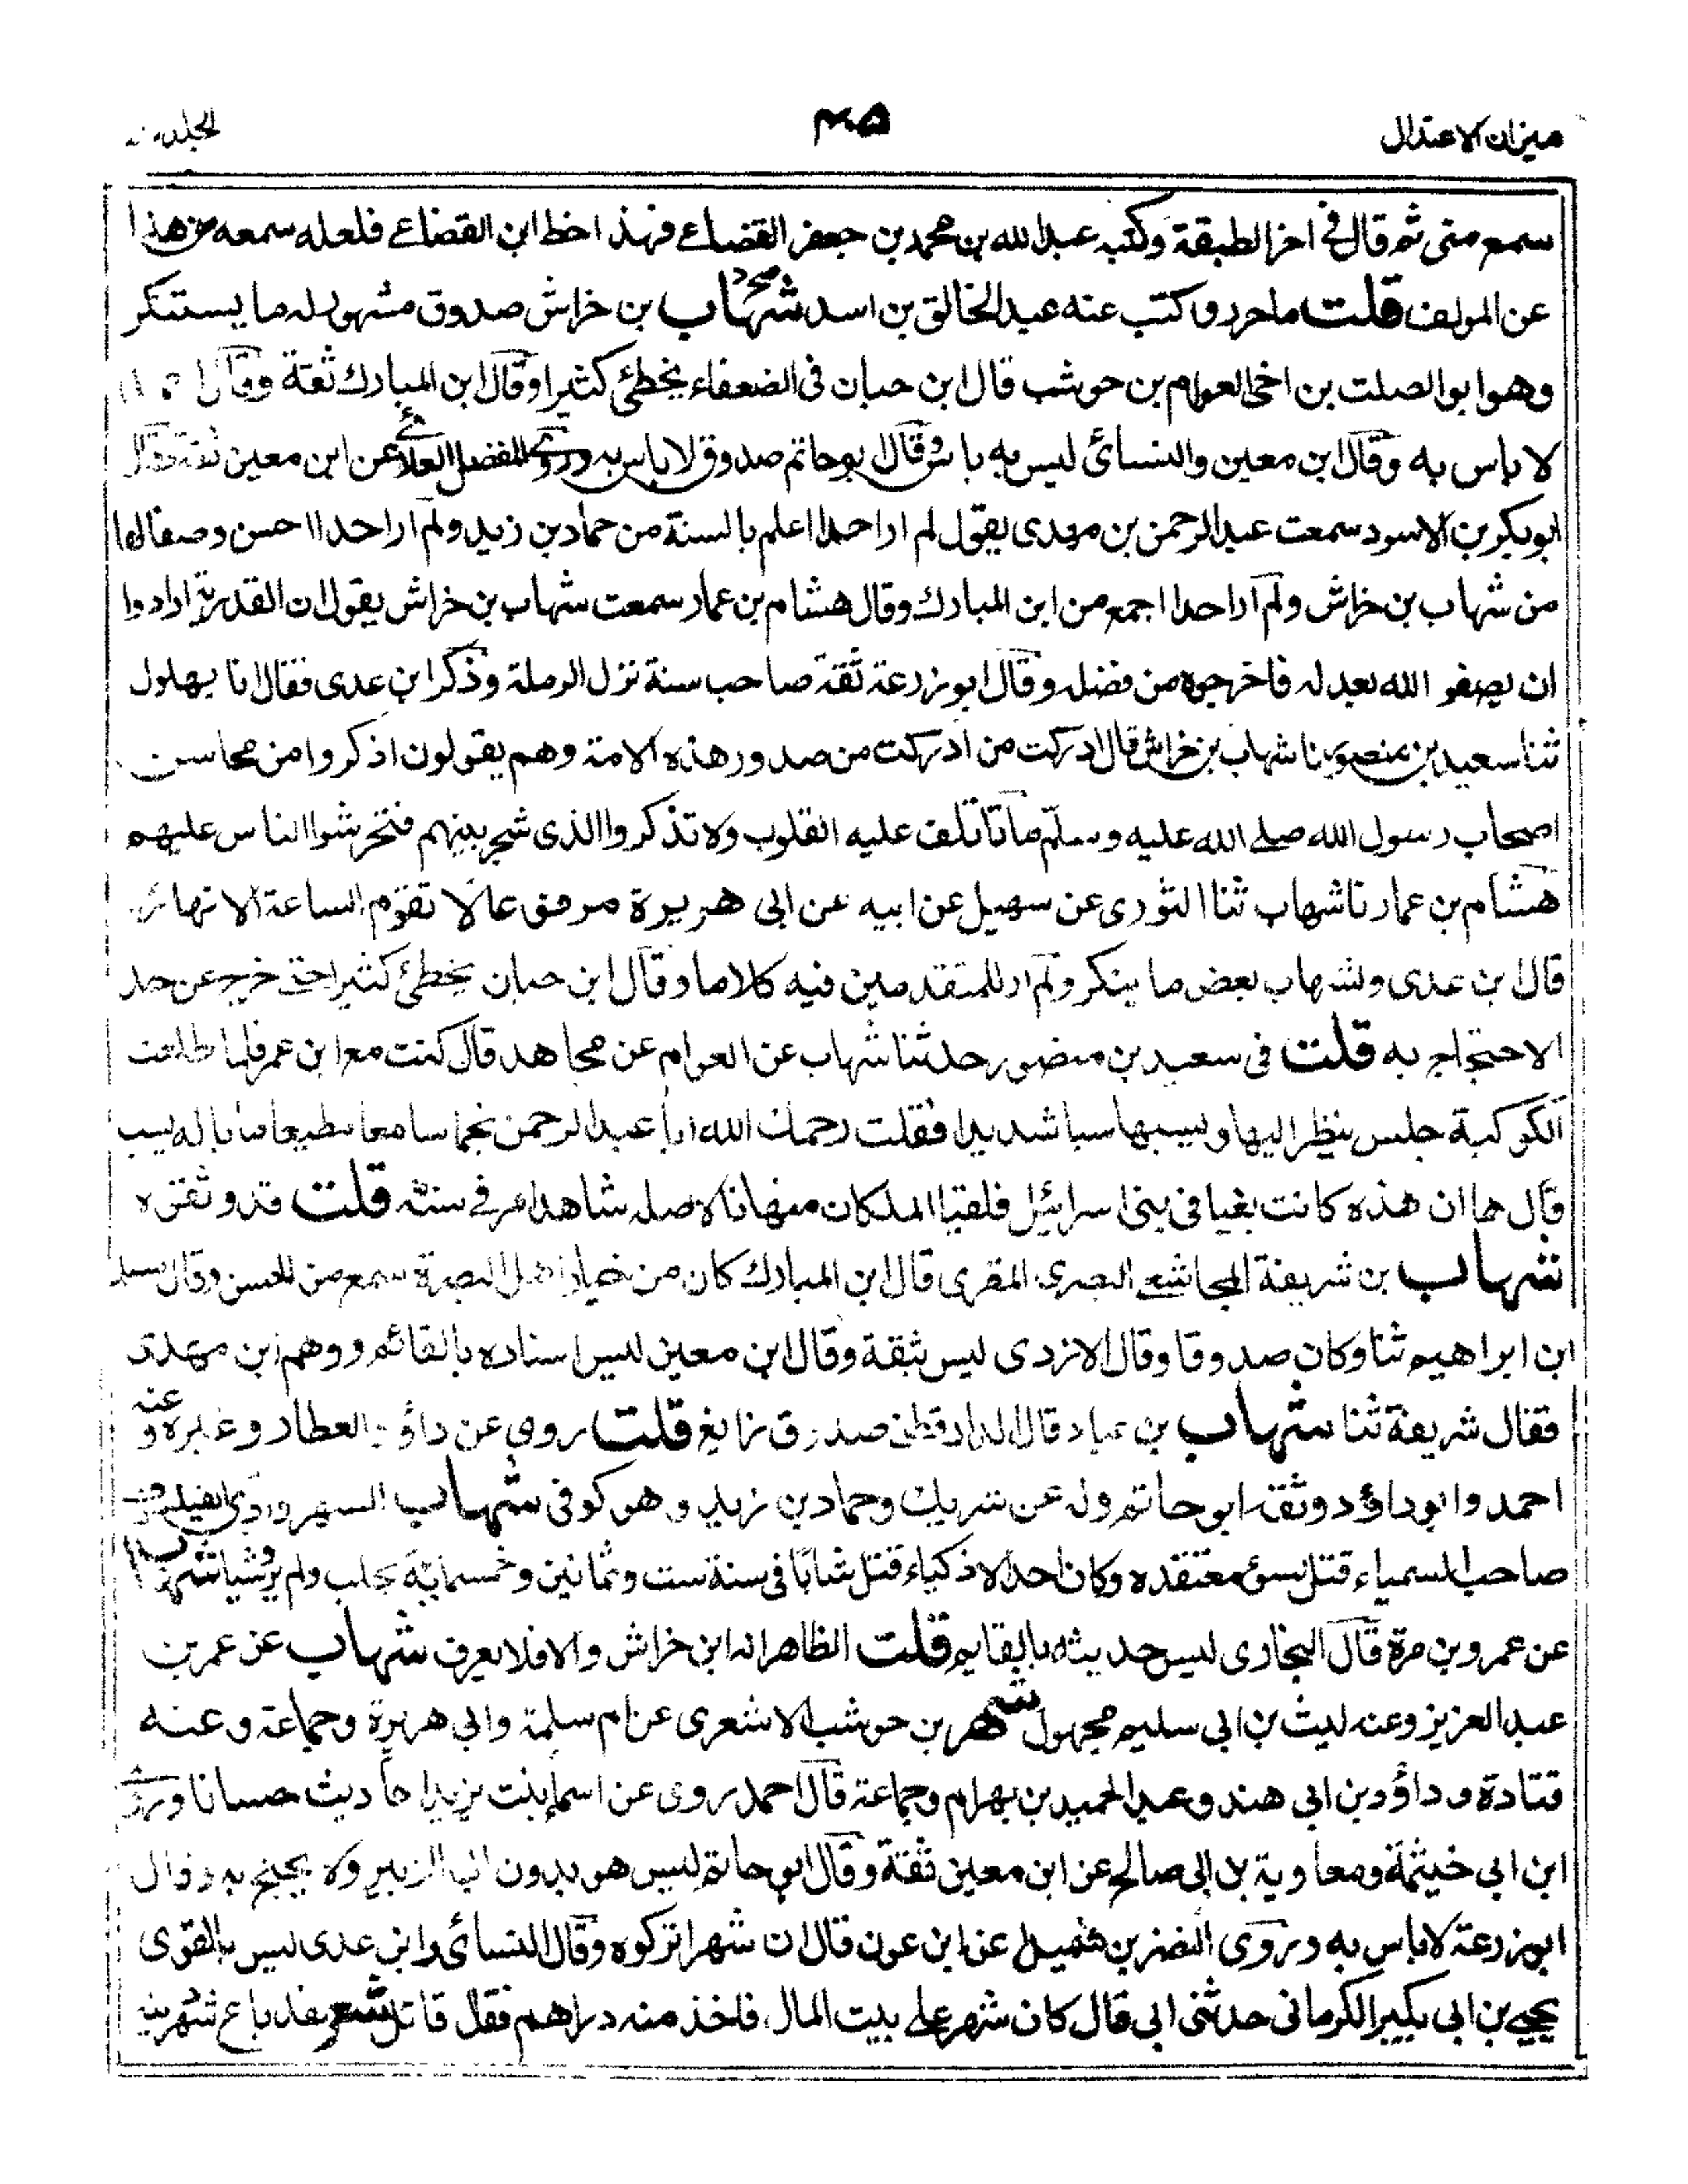 ميزان الاعتدال
٤٠٥
الجلد
سمع مني ثم قال في اخر الطبقة وكتبه عبد الله بن محمد بن جعفر القضاعے فهذا خط ابن القضاعے فلعله سمعه من هذا
عن المولف قلت ماحرر وكتب عنه عبد الخالق بن اسد شهاب بن خراش صدوق مشهور له ما يستنكر
وهو ابو الصلت بن اخي العوام بن حوشب قال ابن حبان في الضعفاء يخطئ كثيرا وقال ابن المبارك ثقة وقال
لا باس به وقال ابن معين والنسائ ليس به باس وقال ابوحاتم صدوق لا باس به وروى المفضل العلائے عن ابن معين ثقة وقال
ابوبكر بن الاسود سمعت عبد الرحمن بن مهدى يقول لم ار احدا اعلم بالسنة من حماد بن زيد ولم ار احدا احسن وصفا لها
من شهاب بن خراش ولم ار احدا اجمع من ابن المبارك وقال هشام بن عمار سمعت شهاب بن خراش يقول ان القدرية ارادوا
ان يصفو الله بعدله فاخرجوه من فضله وقال ابو زرعة ثقة صاحب سنة نزل الرملة وذكر ابن عدى فقال انا بهلول
ثنا سعيد بن منصور نا شهاب بن خراش قال ادركت من ادركت من صدور هذه الامة وهم يقولون اذكروا من محاسن
اصحاب رسول الله صلے الله عليه وسلم ما تاتلف عليه القلوب ولا تذكروا الذى شجر بينهم فتحرشوا الناس عليهم
هشام بن عمار نا شهاب ثنا الثورى عن سهيل عن ابيه عن ابى هريرة مرفوعا لا تقوم الساعة الا نهارا
قال ابن عدى ولشهاب بعض ما ينكر ولم ار للمتقدمين فيه كلاما وقال ابن حبان يخطئ كثيرا حتے خرج عن حد
الاحتجاج به قلت فى سعيد بن منصور حدثنا شهاب عن العوام عن مجاهد قال كنت مع ابن عمر فلما طلعت
الكوكبة جلس ينظر اليها ويسبها سبا شديدا فقلت رحمك الله ابا عبد الرحمن نجما سامعا مطيعا ما باله يسب
قال ها ان هذه كانت بغيا فى بنى اسرائيل فلقيا الملكان منها نا لاصله شاهدا مر فے سنته قلت قد وثقوه
شهاب بن شريفة المجاشعے البصرى المقرى قال ابن المبارك كان من خيار اهل البصرة سمع من الحسن وقال مسلم
ابن ابراهيم ثنا وكان صدوقا وقال الازدى ليس بثقة وقال ابن معين ليس اسناده بالقائم ووهم ابن مهدى
فقال شريفة ثنا شهاب بن عباد قال الدارقطنى صدوق زائغ قلت روى عن داؤد العطار وغيره وعنه
احمد وابو داؤد وثقه ابو حاتم وله عن شريك وحماد بن زيد وهو كوفى شهاب السهروردى الفيلسوف
صاحب السمياء قتل لسوء معتقده وكان احد الاذكياء قتل شابا فى سنة ست وثمانين وخمسمائة بحلب ولم يرو شيئا شهاب
عن عمرو بن مرة قال البخارى ليس حديثه بالقايم قلت الظاهر انه ابن خراش والا فلا يعرف شهاب عن عمر بن
عبد العزيز وعنه ليث بن ابى سليم مجهول شهر بن حوشب الاشعرى عن ام سلمة وابى هريرة وجماعة وعنه
قتادة وداؤد بن ابى هند وعبد الحميد بن بهرام وجماعة قال احمد روى عن اسماء بنت يزيد احاديث حسانا وروى
ابن ابى خيثمة ومعاوية بن ابى صالح عن ابن معين ثقة وقال ابو حاتم ليس هو بدون ابى الزبير ولا يحتج به وقال
ابو زرعة لا باس به وروى النضر بن شميل عن ابن عون قال ان شهرا تركوه وقال النسائ وابن عدى ليس بالقوى
يحيے بن ابى بكير الكرمانى حدثنى ابى قال كان شهر على بيت المال فاخذ منه دراهم فقال قائل شعر لقد باع شهر دينه